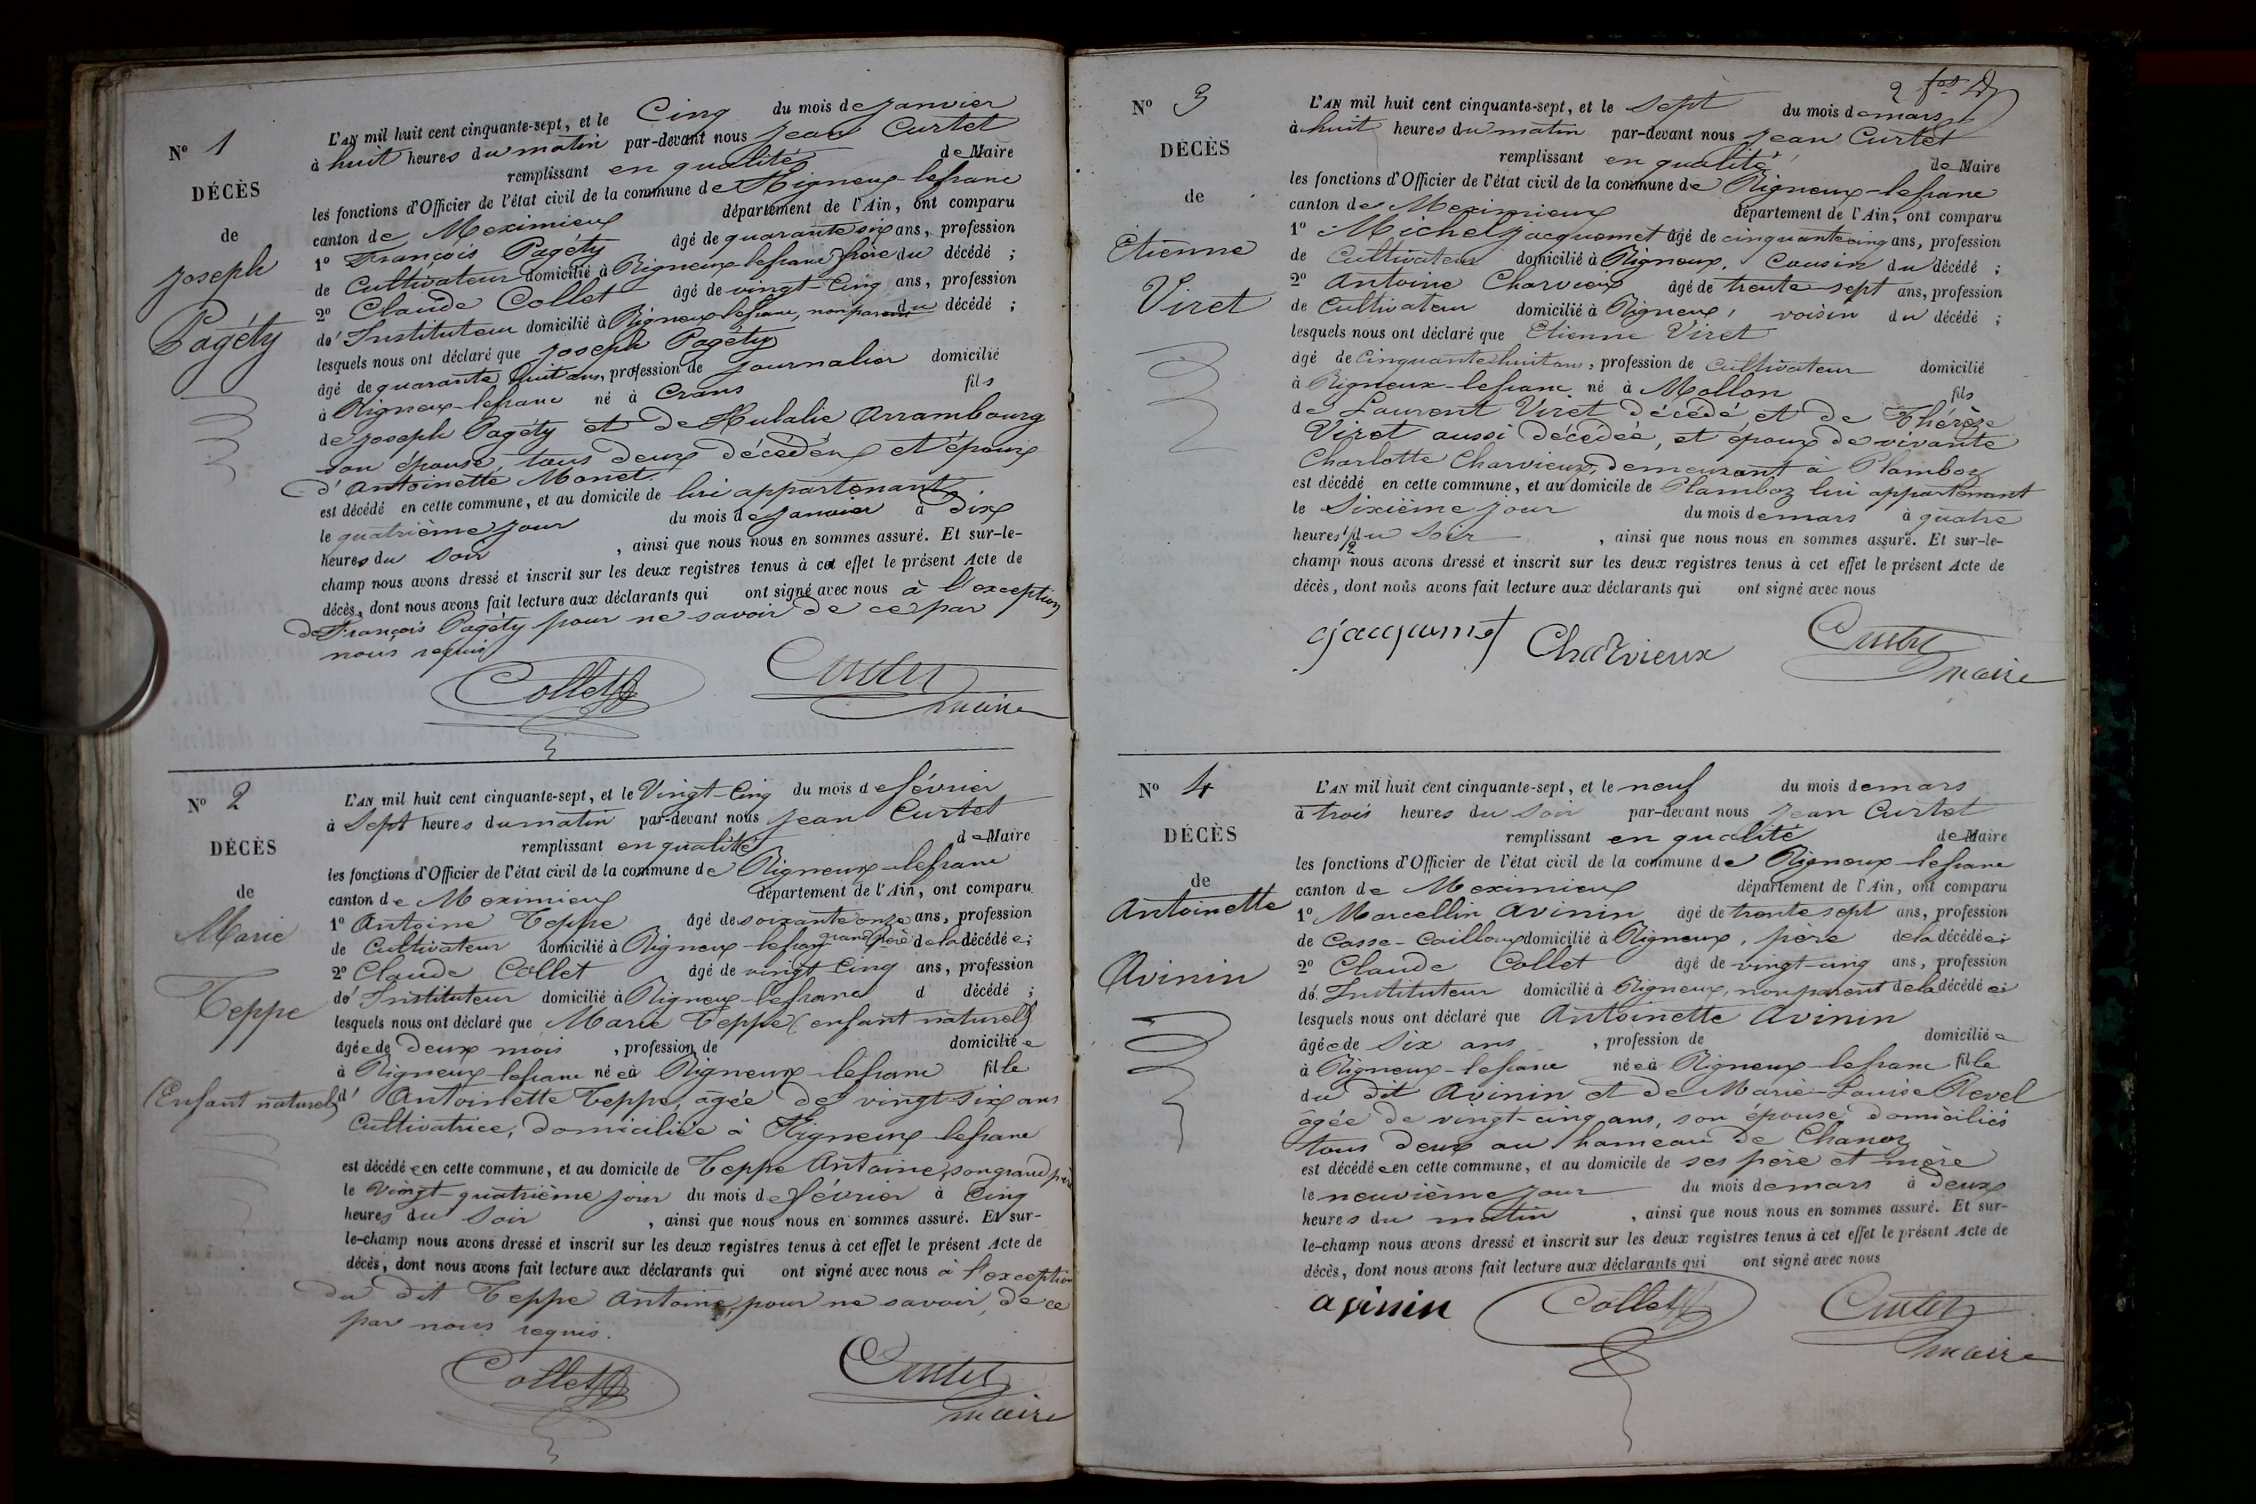 N° 1
DÉCÈS
de
Joseph
Pagéty
L'AN mil huit cent cinquante-sept, et le Cinq du mois de janvier
à huit heures du matin par-devant nous Jean Curtet
remplissant en qualité de Maire
les fonctions d'Officier de l'état civil de la commune de Rigneux-lefranc
canton de Meximieux département de l'Ain, ont comparu
1° François Pagéty âgé de quarante six ans, profession
de Cultivateur domicilié à Rigneux-lefranc frère du décédé ;
2° Claude Collet âgé de vingt-cinq ans, profession
d' Instituteur domicilié à Rigneux-lefranc, non parent du décédé ;
lesquels nous ont déclaré que Joseph Pagéty
âgé de quarante huit ans, profession de journalier domicilié
à Rigneux-lefranc né à Crans fils
de Joseph Pagéty et de Hulalie Arrambourg
son épouse, tous deux décédés et époux
d'Antoinette Monet.
est décédé en cette commune, et au domicile de lui appartenant
le quatrième jour du mois de janvier à dix
heures du soir , ainsi que nous nous en sommes assuré. Et sur-le-
champ nous avons dressé et inscrit sur les deux registres tenus à cet effet le présent Acte de
décès, dont nous avons fait lecture aux déclarants qui ont signé avec nous à l'exception
de François Pagéty pour ne savoir de ce par
nous requis
Collet Curtet
maire
N° 2
DÉCÈS
de
Marie
Teppe
(Enfant naturel)
L'AN mil huit cent cinquante-sept, et le Vingt-Cinq du mois de février
à Sept heures du matin par-devant nous Jean Curtet
remplissant en qualité de Maire
les fonctions d'Officier de l'état civil de la commune de Rigneux-lefranc
canton de Meximieux département de l'Ain, ont comparu
1° Antoine Teppe âgé de soixante onze ans, profession
de Cultivateur domicilié à Rigneux-lefranc grand père de la décédée ;
2° Claude Collet âgé de vingt cinq ans, profession
d' Instituteur domicilié à Rigneux-lefranc d décédé ;
lesquels nous ont déclaré que Marie Teppe (enfant naturel)
âgée de deux mois , profession de domiciliée
à Rigneux-lefranc née à Rigneux-lefranc fille
d' Antoinette Teppe, âgée de vingt-six ans
Cultivatrice, domiciliée à Rigneux-lefranc
est décédée en cette commune, et au domicile de Teppe Antoine, son grand père
le vingt-quatrième jour du mois de février à cinq
heures du soir , ainsi que nous nous en sommes assuré. Et sur-
le-champ nous avons dressé et inscrit sur les deux registres tenus à cet effet le présent Acte de
décès, dont nous avons fait lecture aux déclarants qui ont signé avec nous à l'exception
du dit Teppe Antoine, pour ne savoir, de ce
par nous requis.
Collet Curtet
maire
2
N° 3
DÉCÈS
de
Etienne
Viret
L'AN mil huit cent cinquante-sept, et le Sept du mois de mars
à huit heures du matin par-devant nous Jean Curtet
remplissant en qualité de Maire
les fonctions d'Officier de l'état civil de la commune de Rigneux-lefranc
canton de Meximieux département de l'Ain, ont comparu
1° Michel Jacquemet âgé de cinquante cinq ans, profession
de Cultivateur domicilié à Rigneux, Cousin du décédé ;
2° Antoine Charvieux âgé de trente-sept ans, profession
de Cultivateur domicilié à Rigneux, voisin du décédé ;
lesquels nous ont déclaré que Etienne Viret
âgé de cinquante huit ans, profession de Cultivateur domicilié
à Rigneux-lefranc né à Mollon fils
de Laurent Viret décédé et de Thérèse
Viret aussi décédée, et époux de vivante
Charlotte Charvieux, demeurant à Plamboz
est décédé en cette commune, et au domicile de Plamboz lui appartenant
le Sixième jour du mois de mars à quatre
heures 1/2 du soir , ainsi que nous nous en sommes assuré. Et sur-le-
champ nous avons dressé et inscrit sur les deux registres tenus à cet effet le présent Acte de
décès, dont nous avons fait lecture aux déclarants qui ont signé avec nous
Jacquemet Charvieux Curtet
maire
N° 4
DÉCÈS
de
Antoinette
Avinin
L'AN mil huit cent cinquante-sept, et le neuf du mois de mars
à trois heures du soir par-devant nous Jean Curtet
remplissant en qualité de Maire
les fonctions d'Officier de l'état civil de la commune de Rigneux-lefranc
canton de Meximieux département de l'Ain, ont comparu
1° Marcellin Avinin âgé de trente sept ans, profession
de Casse-Cailloux domicilié à Rigneux, père de la décédée ;
2° Claude Collet âgé de vingt-cinq ans, profession
d' Instituteur domicilié à Rigneux, non parent de la décédée ;
lesquels nous ont déclaré que Antoinette Avinin
âgée de Six ans , profession de domiciliée
à Rigneux-lefranc née à Rigneux-lefranc fille
du dit Avinin et de Marie-Louise Revel
âgée de vingt-cinq ans, son épouse domiciliés
tous deux au hameau de Chanoz
est décédée en cette commune, et au domicile de ses père et mère
le neuvième jour du mois de mars à deux
heures du matin , ainsi que nous nous en sommes assuré. Et sur-
le-champ nous avons dressé et inscrit sur les deux registres tenus à cet effet le présent Acte de
décès, dont nous avons fait lecture aux déclarants qui ont signé avec nous
avinin Collet Curtet
maire